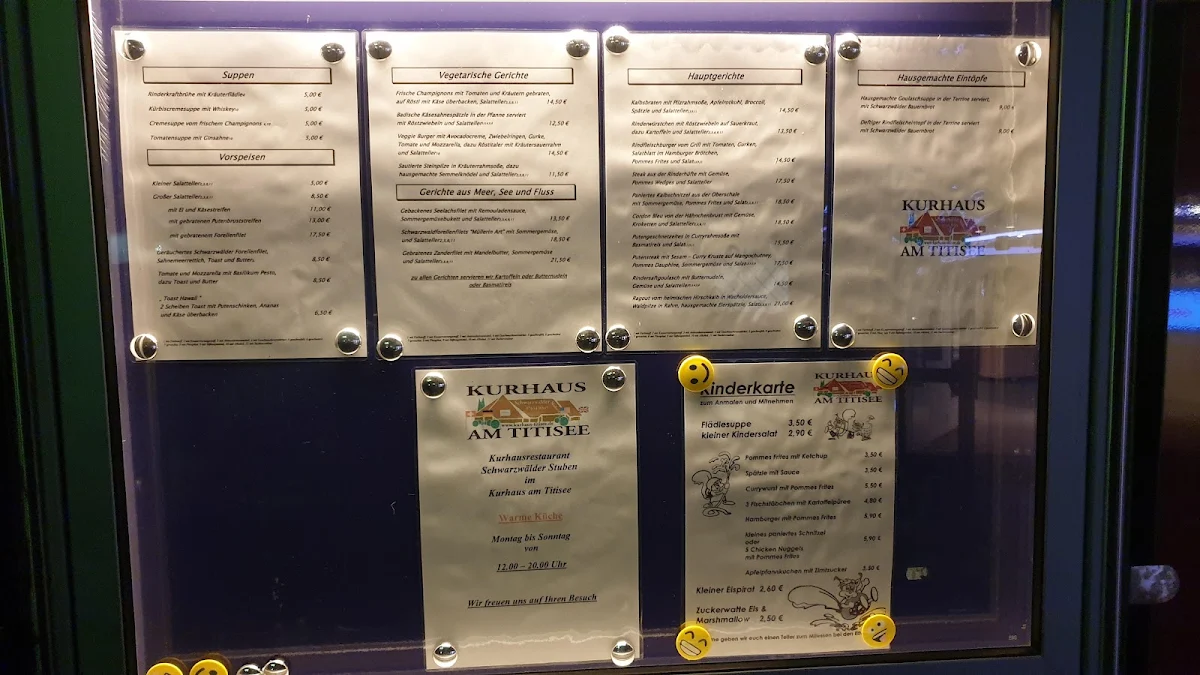 Suppen
Rinderkraftbrühe mit Kräuterflädle 5,00 €
Kürbiscremesuppe mit Whiskey 5,00 €
Cremesuppe vom frischem Champignons 5,00 €
Tomatensuppe mit Ginsahne 5,00 €
Vorspeisen
Kleiner Salatteller 5,00 €
Großer Salatteller 8,50 €
mit Ei und Käsestreifen 11,00 €
mit gebratenen Putenbruststreifen 13,00 €
mit gebratenem Forellenfilet 17,50 €
Geräuchertes Schwarzwälder Forellenfilet,
Sahnemeerrettich, Toast und Butter 8,50 €
Tomate und Mozzarella mit Basilikum Pesto,
dazu Toast und Butter 8,50 €
„ Toast Hawaii "
2 Scheiben Toast mit Putenschinken, Ananas
und Käse überbacken 6,50 €
Vegetarische Gerichte
Frische Champignons mit Tomaten und Kräutern gebraten,
auf Rösti mit Käse überbacken, Salatteller 14,50 €
Badische Käsesahnespätzle in der Pfanne serviert
mit Röstzwiebeln und Salatteller 12,50 €
Veggie Burger mit Avocadocreme, Zwiebelringen, Gurke,
Tomate und Mozzarella, dazu Röstitaler mit Kräutersauerrahm
und Salatteller 14,50 €
Sautierte Steinpilze in Kräuterrahmsoße, dazu
hausgemachte Semmelknödel und Salatteller 11,50 €
Gerichte aus Meer, See und Fluss
Gebackenes Seelachsfilet mit Remouladensauce,
Sommergemüsebukett und Salatteller 13,50 €
Schwarzwaldforellenfilets "Müllerin Art" mit Sommergemüse,
und Salatteller 18,50 €
Gebratenes Zanderfilet mit Mandelbutter, Sommergemüse
und Salatteller 21,50 €
zu allen Gerichten servieren wir Kartoffeln oder Butternudeln
oder Basmatireis
Hauptgerichte
Kalbsbraten mit Pilzrahmsoße, Apfelrotkohl, Broccoli,
Spätzle und Salatteller 14,50 €
Rinderwürstchen mit Röstzwiebeln auf Sauerkraut,
dazu Kartoffeln und Salatteller 13,50 €
Rindfleischburger vom Grill mit Tomaten, Gurken,
Salatblatt im Hamburger Brötchen,
Pommes Frites und Salat 14,50 €
Steak aus der Rinderhüfte mit Gemüse,
Pommes Wedges und Salatteller 17,50 €
Paniertes Kalbschnitzel aus der Oberschale
mit Sommergemüse, Pommes Frites und Salat 18,50 €
Cordon Bleu von der Hähnchenbrust mit Gemüse,
Kroketten und Salatteller 18,50 €
Putengeschnetzeltes in Curryrahmsoße mit
Basmatireis und Salat 15,50 €
Putensteak mit Sesam - Curry Kruste auf Mangobutter,
Pommes Dauphine, Sommergemüse und Salat
Rindersaftgoulasch mit Butternudeln,
Gemüse und Salatteller 14,50 €
Ragout vom heimischen Hirschkalb in Wacholdersauce,
Waldpilze in Rahm, hausgemachte Eierspätzle, Salat 21,00 €
Hausgemachte Eintöpfe
Hausgemachte Goulaschsuppe in der Terrine serviert,
mit Schwarzwälder Bauernbrot 9,00 €
Deftiger Rindfleischeintopf in der Terrine serviert,
mit Schwarzwälder Bauernbrot 9,00 €
KURHAUS
AM TITISEE
KURHAUS
AM TITISEE
Kurhausrestaurant
Schwarzwälder Stuben
im
Kurhaus am Titisee
Warme Küche
Montag bis Sonntag
von
12.00 – 20.00 Uhr
Wir freuen uns auf Ihren Besuch
Kinderkarte
zum Anmalen und Mitnehmen
KURHAUS
AM TITISEE
Flädlesuppe 3,50 €
kleiner Kindersalat 2,90 €
Pommes Frites mit Ketchup 3,50 €
Spätzle mit Sauce 3,50 €
Currywurst mit Pommes Frites 5,50 €
3 Fischstäbchen mit Kartoffelpüree 4,80 €
Hamburger mit Pommes Frites 5,90 €
kleines paniertes Schnitzel
oder 5,90 €
5 Chicken Nuggets
mit Pommes Frites
Apfelpfannkuchen mit Zimtzucker 3,50 €
Kleiner Eispirat 2,60 €
Zuckerwatte Eis &
Marshmallow 2,50 €
geben wir euch einen Teller zum